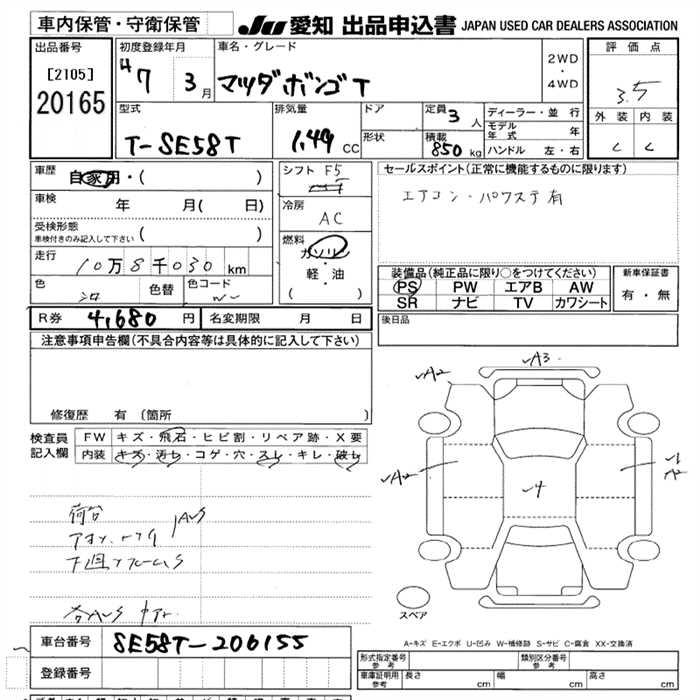 車内保管・守衛保管
JU 愛知 出品申込書 JAPAN USED CAR DEALERS ASSOCIATION
出品番号
[2105]
20165
初度登録年月
H7 3月
車名・グレード
マツダボンゴT
2WD
・
4WD
評価点
3.5
外装 内装
C C
型式
T-SE58T
排気量
1.49 CC
ドア
形状
定員 3人
積載 850kg
ディーラー・並行
モデル年式 年
ハンドル 左・右
車歴 自家用・( )
車検 年 月( 日)
受検形態 ( )
車検付きのみ記入して下さい
走行 10万8千030 km
色 シロ 色替 色コード
シフト F5
冷房 AC
燃料
ガソリン
・
軽・油
( )
セールスポイント(正常に機能するものに限ります)
エアコン・パワステ有
装備品(純正品に限り○をつけてください)
PS PW エアB AW
SR ナビ TV カワシート
新車保証書
有・無
R券 4,680円 名変期限 月 日
後日品
注意事項申告欄(不具合内容等は具体的に記入して下さい)
修復歴 有(箇所
検査員記入欄
FW キズ・飛石・ヒビ割・リペア跡・X要
内装 キズ・汚レ・コゲ・穴・スレ・キレ・破レ
荷台
アオリ
下回フレームS
各AUS
A3
A2
A2
A2
4
スペア
A-キズ E-エクボ U-凹み W-補修跡 S-サビ C-腐食 XX-交換済
車台番号 SE58T-206155
登録番号
形式指定番号 参考
類別区分番号 参考
車庫証明用 参考 長さ cm 幅 cm 高さ cm